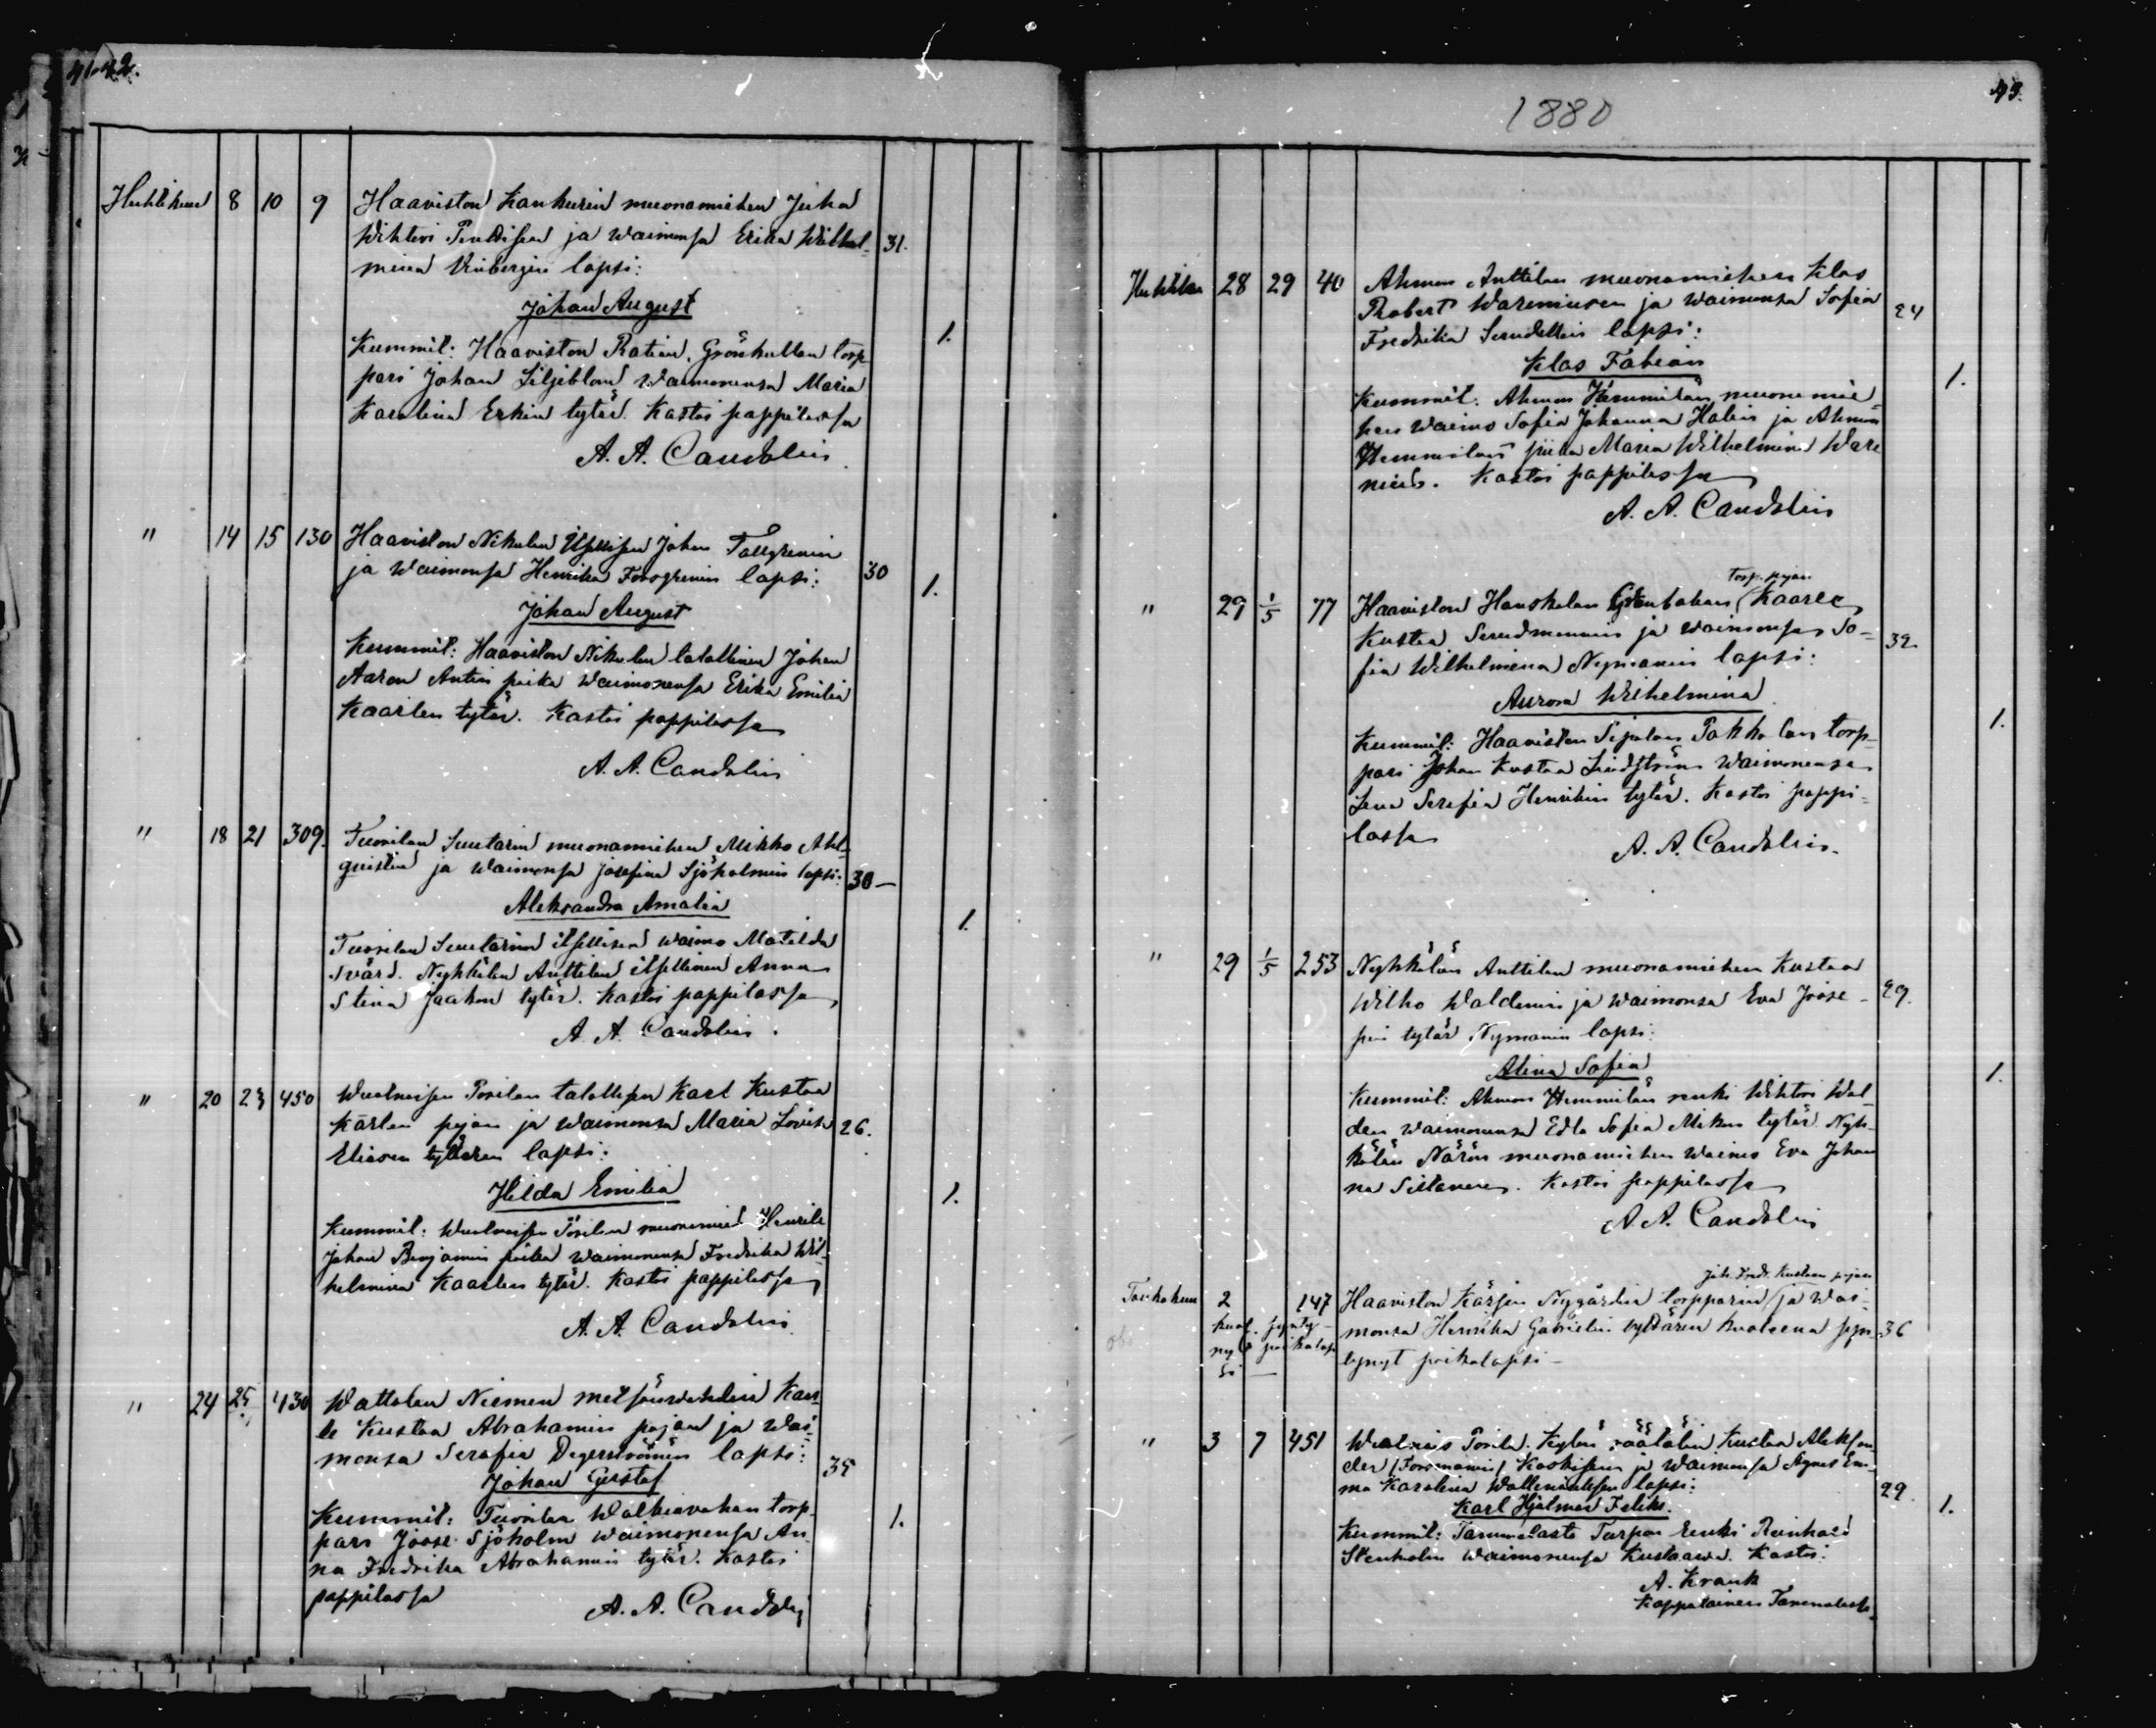 41-42.
Huhtikuu 8 10 9 Haaviston Kankurin muonamiehen Juha
Wihtori ja waimonsa Erika Wilhel- 31.
mina lapsi:
Johan August
1.
Kummit: Haaviston Grönkullan torp
pari Johan Liljeblom Waimonensa Maria
Karolina Erkin tytär. Kastoi pappilassa
A. A. Candolin
" 14 15 130 Haaviston Nikulan Itsellisen Johan
ja Waimonsa Henrika lapsi: 30
1.
Johan August
Kummit: Haaviston Nikulan talollinen Johan
Aaron Antin poika Waimonensa Erika Emilia
Kaarlen tytär. Kastoi pappilassa
A. A. Candolin
" 18 21 309. Tuorilan Suutarin muonamiehen Mikko Ahl-
quistin ja Waimonsa Josefina Sjöholmin lapsi: 30 —
Aleksandra Amalia
1.
Tuorilan Suutarin itsellisen waimo Matilda
Svärd. Nyhkälän Anttilan itsellinen Anna
Stina Jaakon tytär. Kastoi pappilassa
A. A. Candolin.
" 20 23 450 Porilan talollisen Karl Kustaa
Kärlen pojan ja Waimonsa Maria Lovisa 26.
Eliasen tyttären lapsi:
Hilda Emilia
1.
Kummit: Porilan muonamies Henrik
Johan Benjamin poika Waimonensa Fredrika Wil-
helmina Kaarlen tytär. Kastoi pappilassa
A. A. Candolin
" 24 25 430 Wattolan Niemen metsänwahdin Kaar-
le Kustaa Abrahamin pojan ja Wai-
monsa Serafia Degerströmin lapsi: 35
Johan Gustaf
1.
Kummit: Tuorilan torp-
pari Joose Sjöholm Waimonensa An-
na Fredrika Abrahamin tytär. Kastoi
pappilassa
A. A. Candolin
1880
43.
Huhtikuu 28 29 40 Ahmon Anttilan muonamiehen Klas
Robert Wareniusen ja Waimonsa Sofia 24
Fredrika lapsi:
Klas Fabian
1.
Kummit. Ahmon Hemmilän muonamie-
hen Waimo Sofia Johanna Halin ja Ahmon
Hemmilän piika Maria Wilhelmina Ware
nius. Kastoi pappilassa
A. A. Candolin
torp. pojan
" 29 1/5 77 Haaviston Hauskalan Kaarle
Kustaa Sundmanin ja Waimonsa So- 32.
fia Wilhelmina Nymanin lapsi:
Aurora Wilhelmina
1.
Kummit: Haaviston Sipilan Pakkalan torp-
pari Johan Kustaa Lindström Waimonensa
Lena Serafia Henrikin tytär. Kastoi pappi-
lassa
A. A. Candolin.
" 29 1/5 253 Nyhkälän Anttilan muonamiehen Kustaa
Wilho Waldenin ja Waimonsa Eva Joose- 29.
pin tytär Nymanin lapsi:
Alina Sofia
1.
Kummit: Ahmon Hemmilän renki Wihtori Wal-
den Waimonensa Edla Sofia Mikon tytär. Nyh-
kälän Närön muonamiehen Waimo Eva Johan
na Sillanen. Kastoi pappilassa
A. A. Candolin
Joh. Fredr. Kustaan pojan
Toukokuu 2 147 Haaviston Kärjen Nygårdin torpparin ja Wai-
kuol. synty-
monsa Henrika Gabrielin tyttären kuoleena syn- 36
nyt poikalap
tynyt poikalapsi —
si —
" 3 7 451 Porila. Kylän räätälin Kustaa Aleksan-
der (Forsmanin) Koskisen ja Waimonsa Agnes Em-
ma Karolina lapsi: 29.
Karl Hjalmar Feliks.
1.
Kummit: Tammelasta Torpan renki Reinhold
Stenholm Waimonensa Kustaawa. Kastoi:
A. Krank
Kappalainen Tammelasta